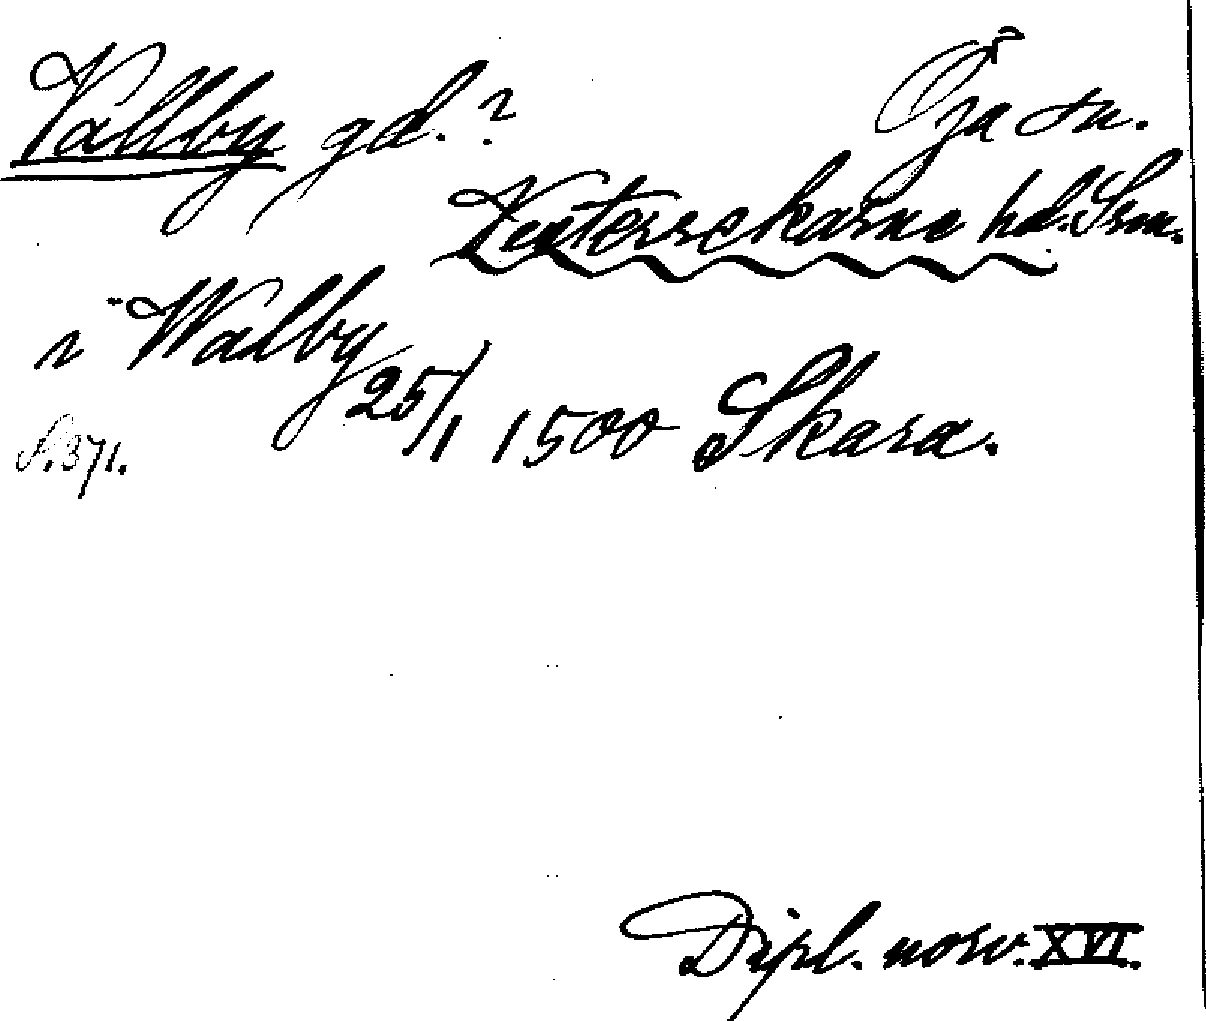 Vallby gd.? Öja sn.
Västerrekarne hd. Srm.
i Walby 25/1 1500 Skara.
S. 371.
Dipl. norv. XVI.